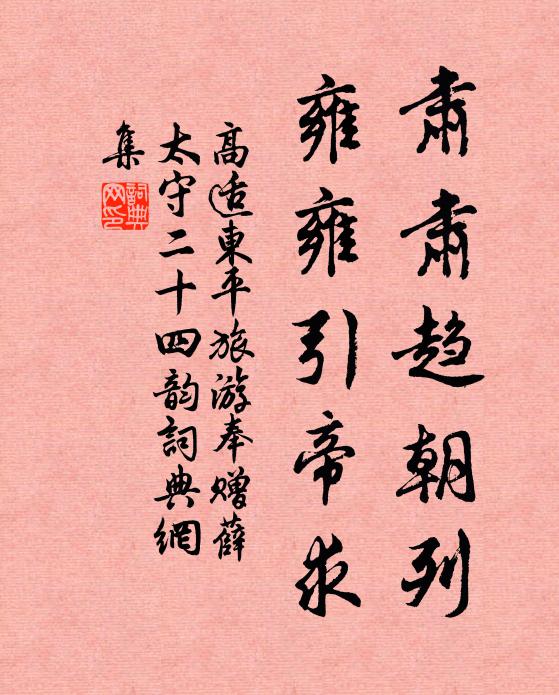 肅肅趨朝列
雍雍引帝求
高适東平旅游奉贈薛
太守二十四韵詞典網
集
詞典网印